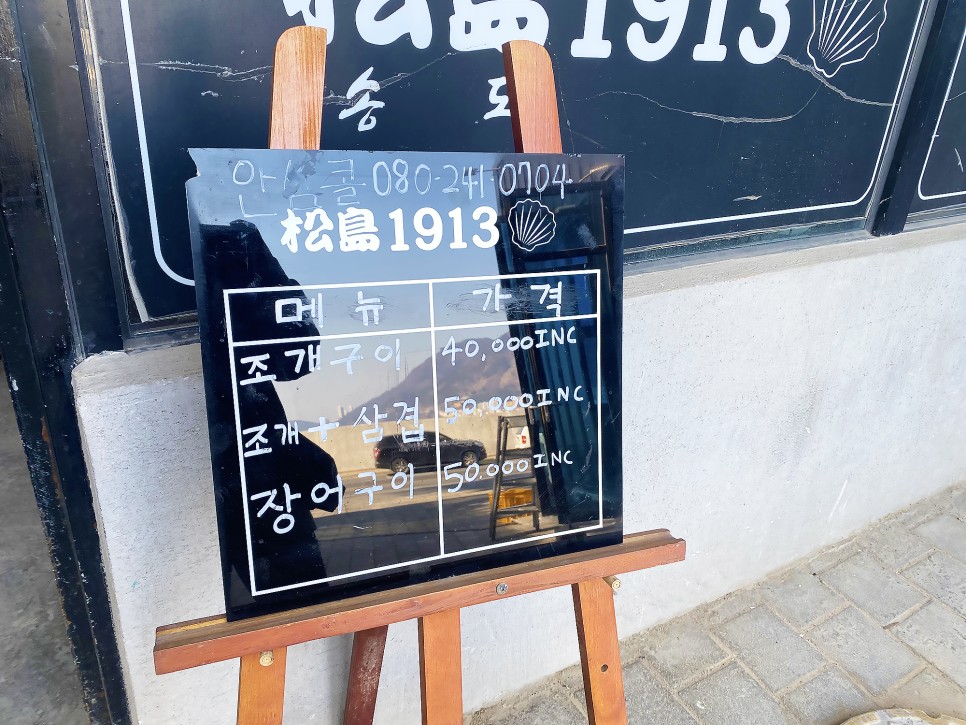 松島1913
송도
안심콜 080-241-0704
松島1913
메뉴 가격
조개구이 40,000INC
조개+삼겹 50,000INC
장어구이 50.000INC